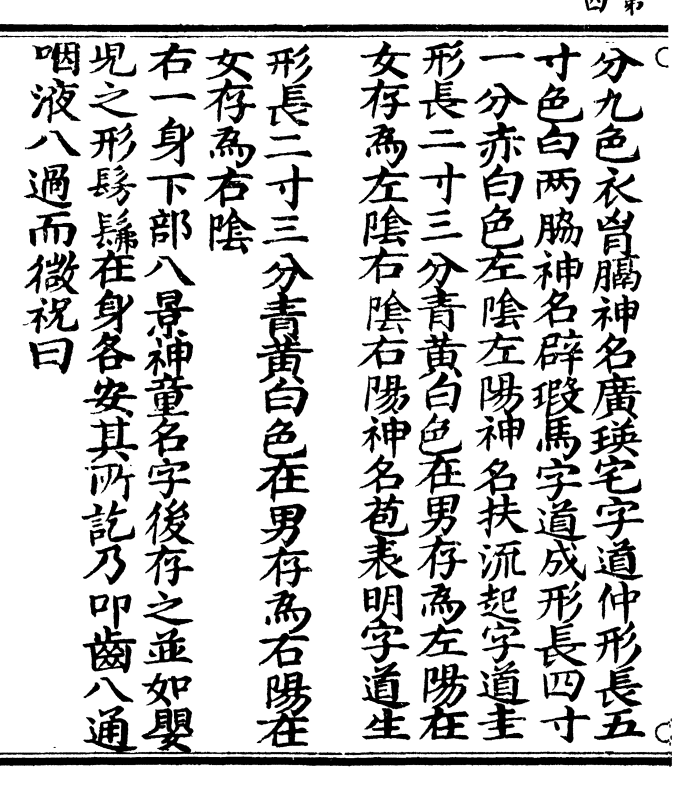 第四
分九色衣胷膈神名廣瑛宅字道仲形長五
寸色白两脇神名辟瑕馬字道成形長四寸
一分赤白色左陰左陽神名扶流起字道圭
形長二寸三分青黄白色在男存為左陽在
女存為左陰右陰右陽神名苞表明字道生
形長二寸三分青黄白色在男存為右陽在
女存為右陰
右一身下部八景神童名字後存之並如嬰
児之形髣髴在身各安其所訖乃叩齒八通
咽液八過而微祝曰